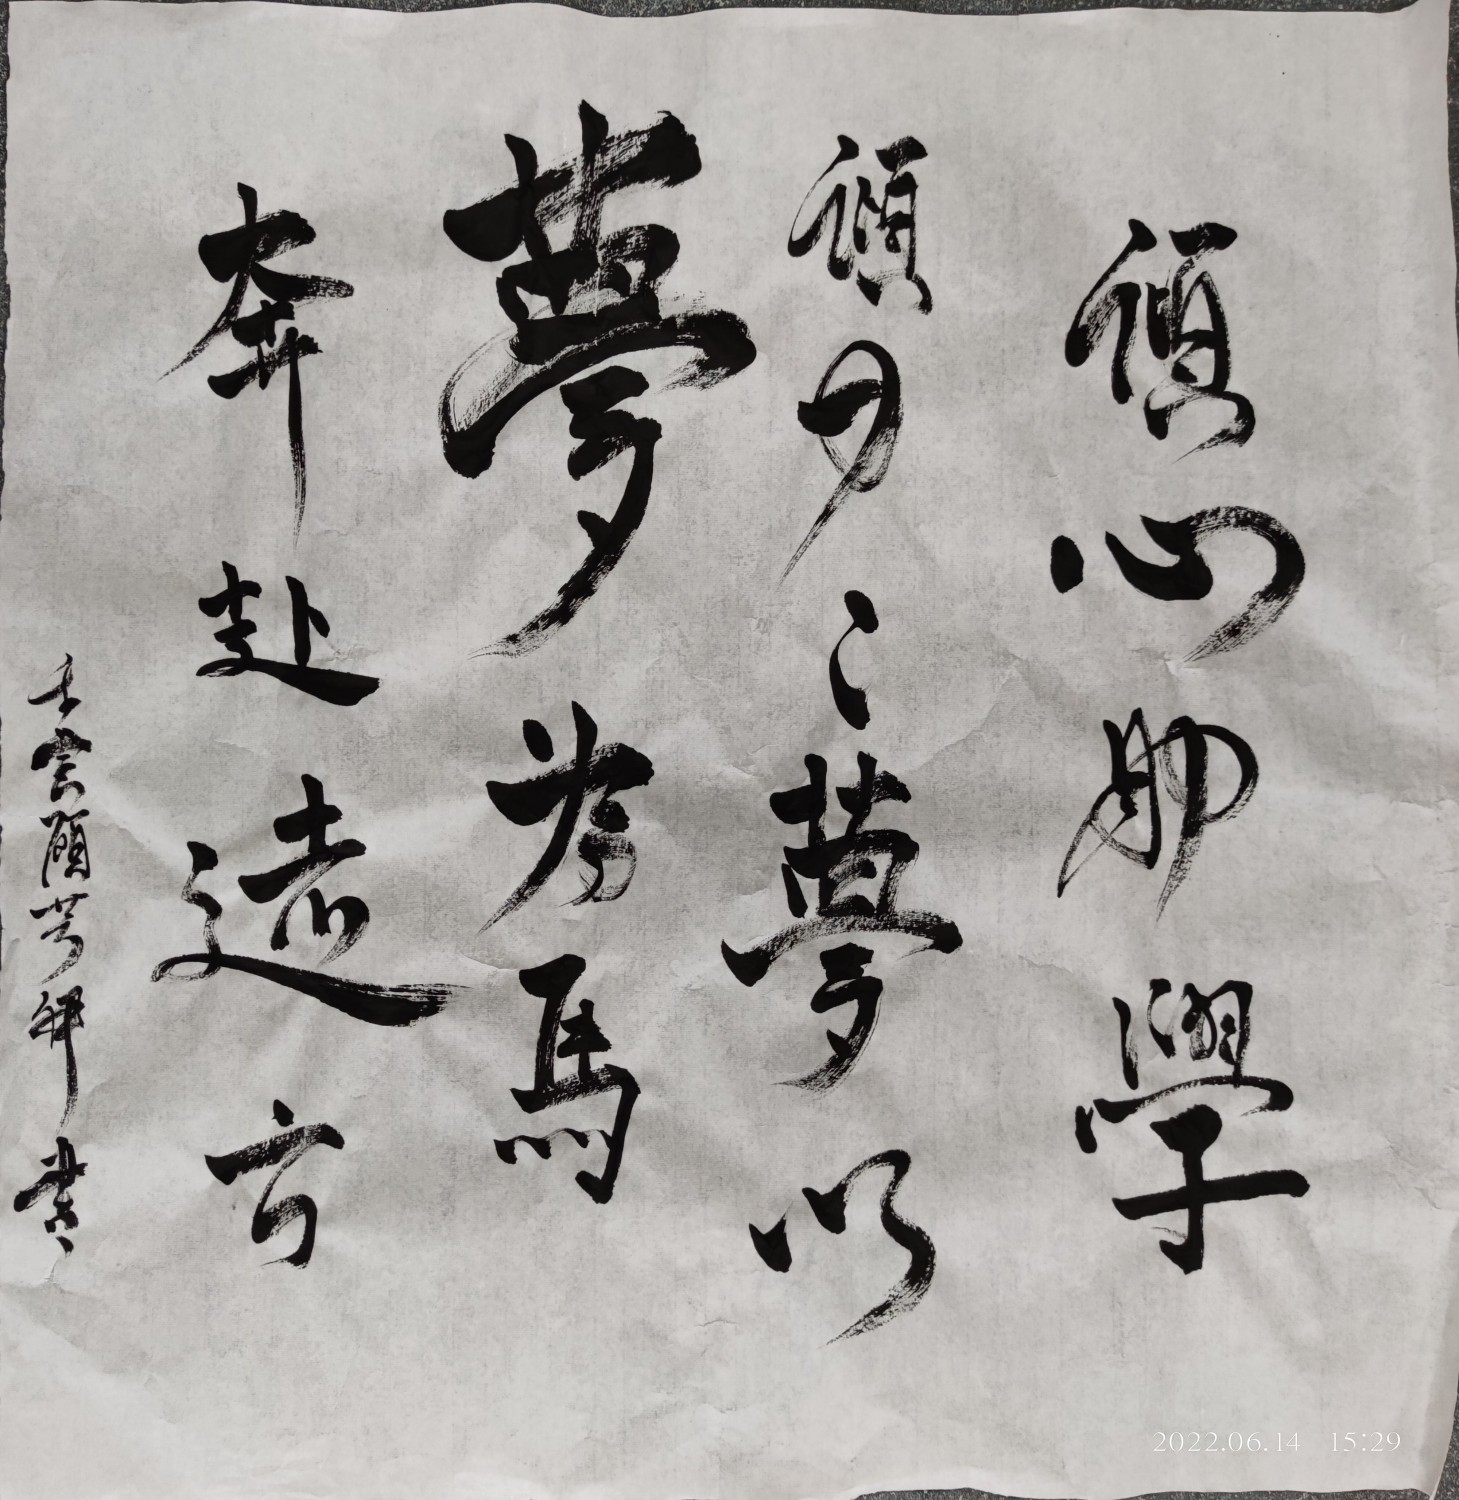 傾心助學
傾力之夢以
夢為馬
奔赴遠方
壬寅
書
2022.06.14 15:29